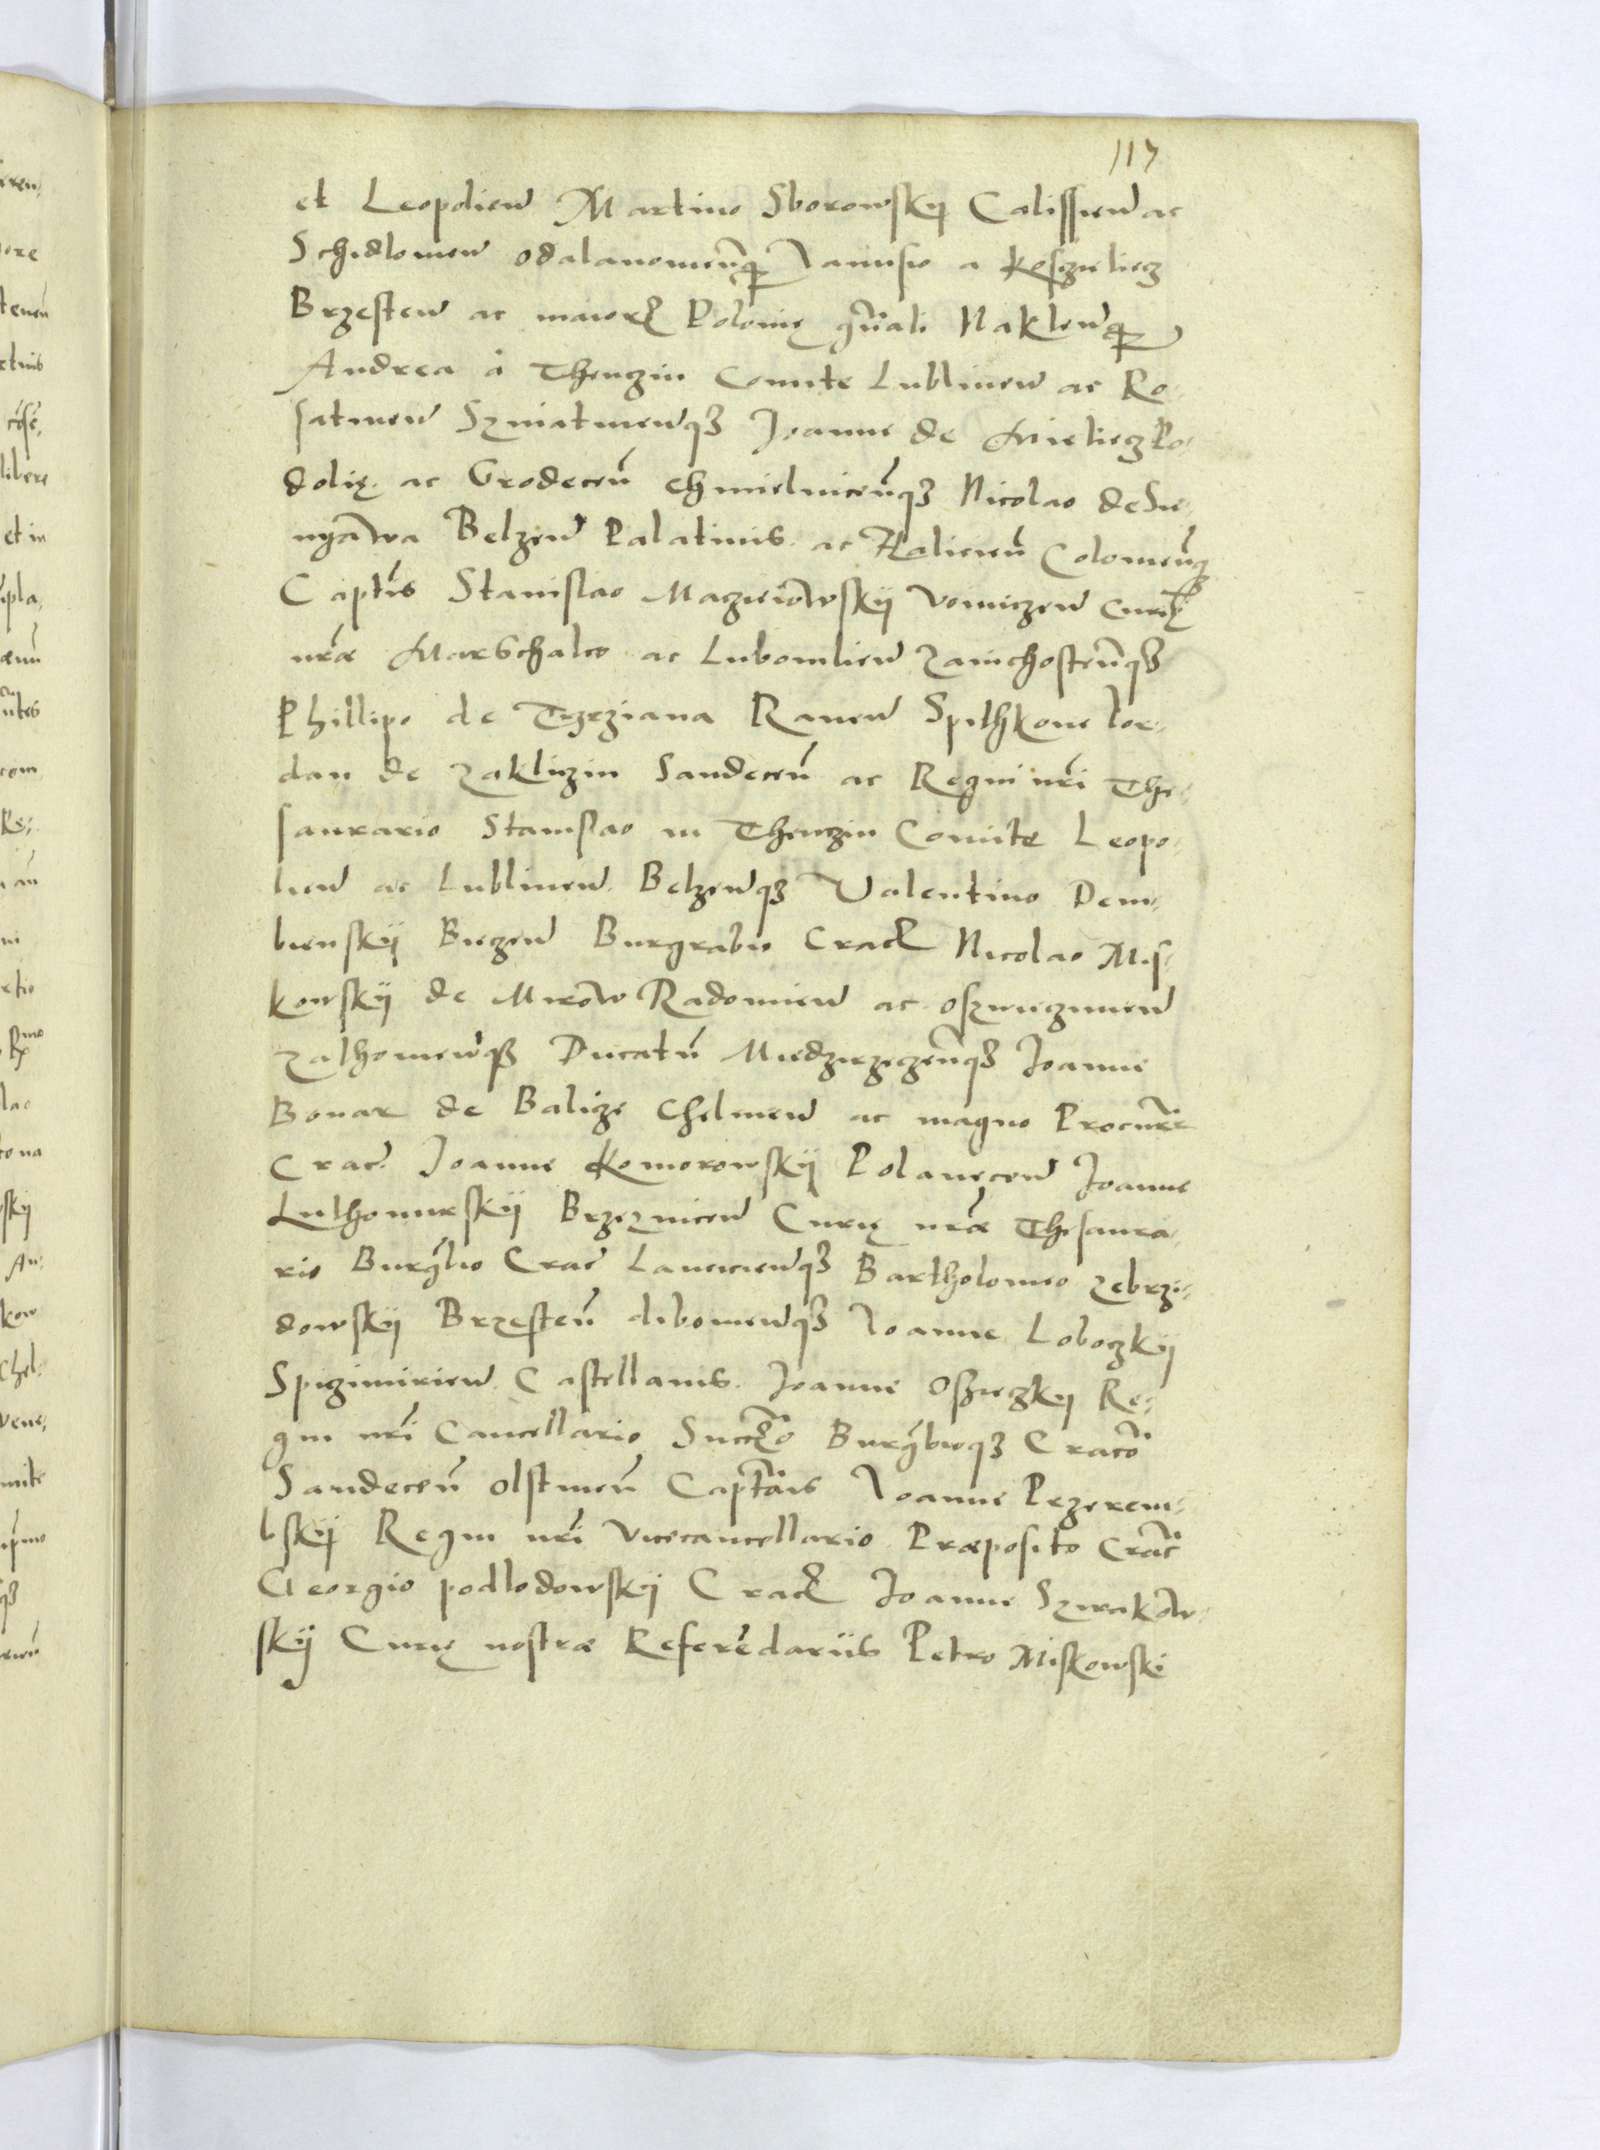 117
et Leopolien Martino Sborowskij Calissien ac
Schidlowien odalanowienq Janusio a Kosczieliecz
Brzesten ac maioris Polonię gnali Naklenq
Andrea á Thenczin Comite Lublinen ac Ro-
hatinen Szniatinenq3 Joanne de Mieliecz Po-
dolię ac Grodecen Chmielnicenq3 Nicolao de Sie-
nyawa Belzen Palatinis ac Halicien Colomienq
Captis Stanislao Macziewskij Voniczen Curię
nræ Marschalco ac Lubomlien Zawichostenq3
Phillipo de Trzeziana Raven Spithkone Ior-
dan de Zakliczin Sandecen ac Regni nri The-
saurario Stanislao in Thenczin Comite Leopo-
lien ac Lublinen Belzenq3 Valentino Dem-
bienskij Biecen Burgrabio Crac Nicolao Mis-
kowskij de Mirow Radomien ac osswieczimen
Zathorienq3 Ducatu Miedzirzeczenq3 Joanne
Bonar de Balicze Chelmen ac magno Procurre
Crac Joanne Komorowskij Polanecen Joanne
Luthomirskij Brzeznicen Curię nræ Thesaura-
rio Burgbio Crac Lancicienq3 Bartholomeo Zebrzi-
dowskij Brzesten dibowienq3 Joanne Loboczkij
Spiczimirien Castellanis Joanne Oszieczkij Re-
gni nri Cancellario Burgbioq3 Craco
Sandecen Olstinen Captais Joanne Przerem-
bskij Regni nri Vicecancellario Præposito Crac
Georgio podlodowskij Crac Joanne Szirakow-
skij Curię nostræ Referedariis Petro Miskowski